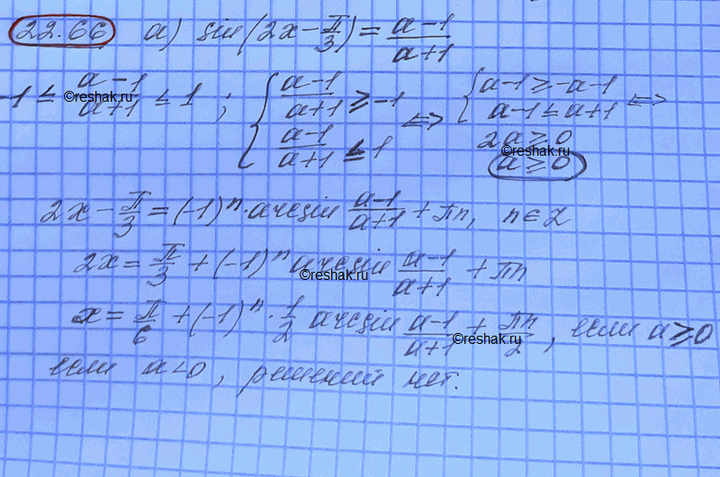 22.66 а) sin(2x − π/3) = (a−1)/(a+1)
−1 ≤ (a−1)/(a+1) ≤ 1 ; { (a−1)/(a+1) ≥ −1 ⇔ { a−1 ≥ −a−1 ⇔
(a−1)/(a+1) ≤ 1 a−1 ≤ a+1
2a ≥ 0
a ≥ 0
©reshak.ru
©reshak.ru
2x − π/3 = (−1)ⁿ · arcsin (a−1)/(a+1) + πn, n ∈ Z
2x = π/3 + (−1)ⁿ arcsin (a−1)/(a+1) + πn
©reshak.ru
x = π/6 + (−1)ⁿ · 1/2 arcsin (a−1)/(a+1) + πn/2, если a ≥ 0
©reshak.ru
если a < 0, решений нет.